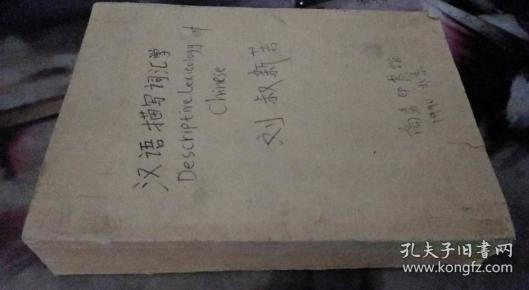 汉语描写词汇学
Descriptive Lexicology of
Chinese
刘叔新著
商务印书馆
北京
1990
孔夫子旧书网
www.kongfz.com